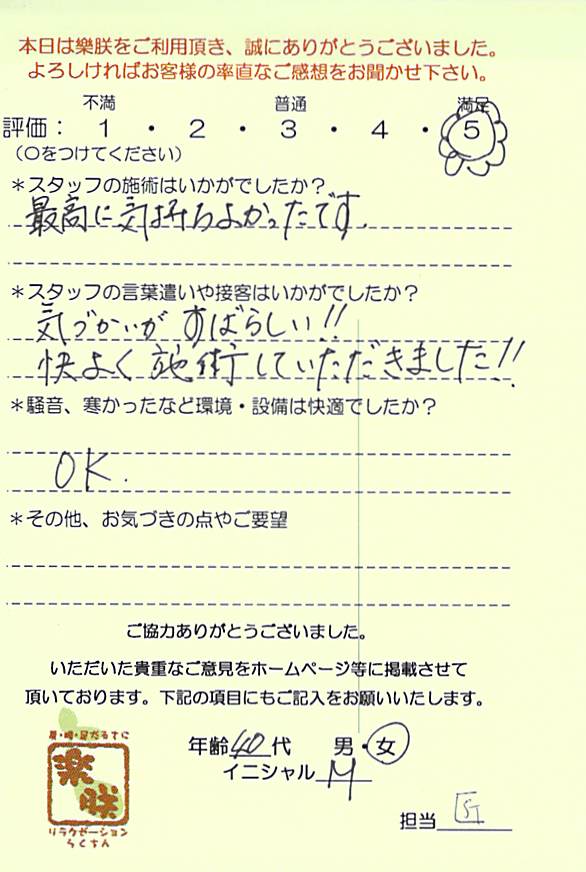 本日は樂朕をご利用頂き、誠にありがとうございました。
よろしければお客様の率直なご感想をお聞かせ下さい。
不満 普通 満足
評価： 1 ・ 2 ・ 3 ・ 4 ・ 5
（○をつけてください）
＊スタッフの施術はいかがでしたか？
最高に気持ちよかったです。
＊スタッフの言葉遣いや接客はいかがでしたか？
気づかいがすばらしい!!
快よく施術していただきました!!
＊騒音、寒かったなど環境・設備は快適でしたか？
OK.
＊その他、お気づきの点やご要望
ご協力ありがとうございました。
いただいた貴重なご意見をホームページ等に掲載させて
頂いております。下記の項目にもご記入をお願いいたします。
年齢 40 代 男・女
イニシャル M
担当
樂朕
リラクゼーション
らくちん